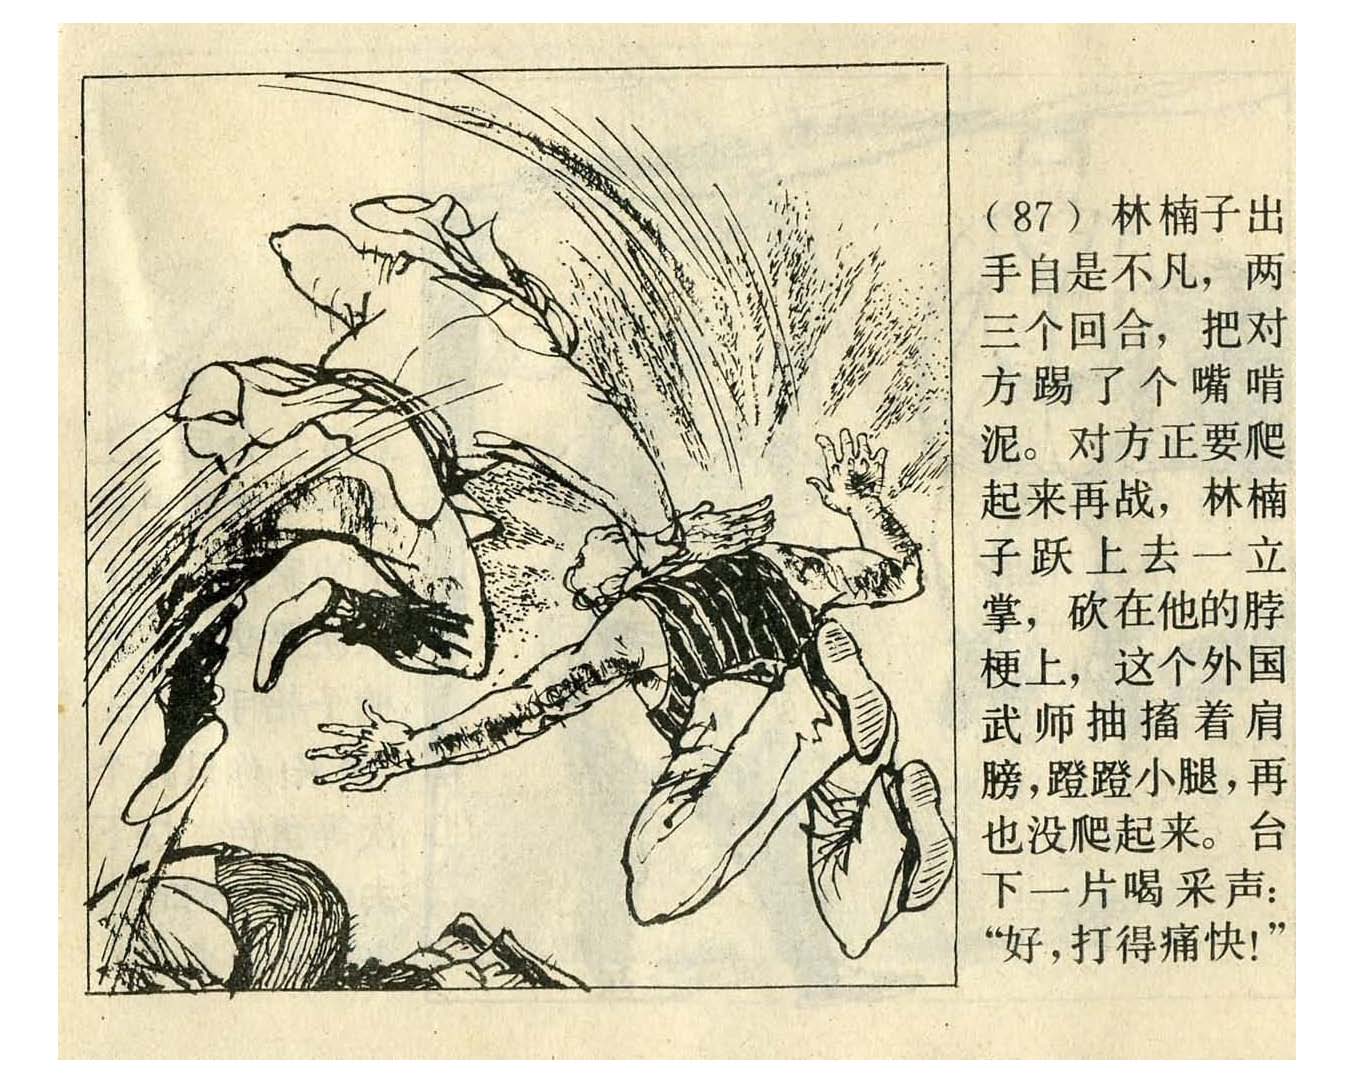 （87）林楠子出
手自是不凡，两
三个回合，把对
方踢了个嘴啃
泥。对方正要爬
起来再战，林楠
子跃上去一立
掌，砍在他的脖
梗上，这个外国
武师抽搐着肩
膀，蹬蹬小腿，再
也没爬起来。台
下一片喝采声：
“好，打得痛快！”